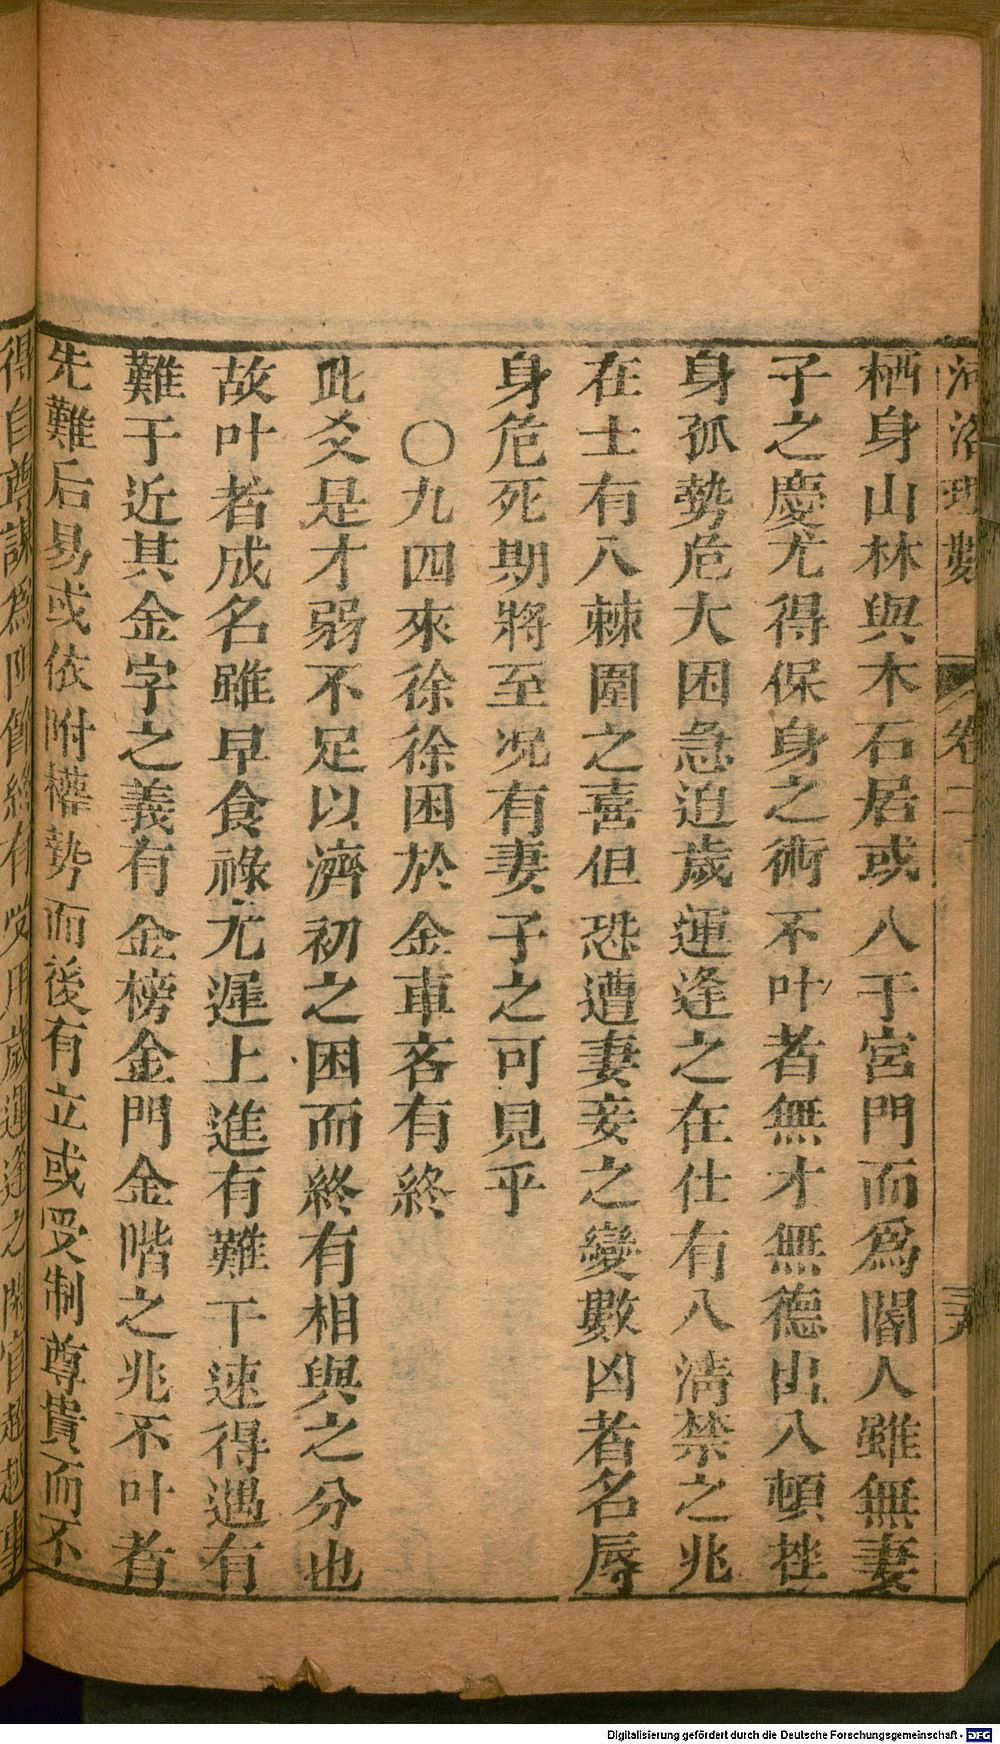 河洛理數 卷二 三九
栖身山林與木石居或入于宮門而爲閽人雖無妻
子之慶尤得保身之術不叶者無才無德出入頓挫
身孤勢危大困急迫歲運逢之在仕有入清禁之兆
在士有入棘圍之喜但恐遭妻妾之變數凶者名辱
身危死期將至况有妻子之可見乎
〇九四來徐徐困於金車吝有終
此爻是才弱不足以濟初之困而終有相與之分也
故叶者成名雖早食祿尤遲上進有難于速得遇有
難于近其金字之義有金榜金門金階之兆不叶者
先難后易或依附權勢而後有立或受制尊貴而不
得自尊謀爲阻節終有受用歲運逢之閑官超越事
Digitalisierung gefördert durch die Deutsche Forschungsgemeinschaft - DFG